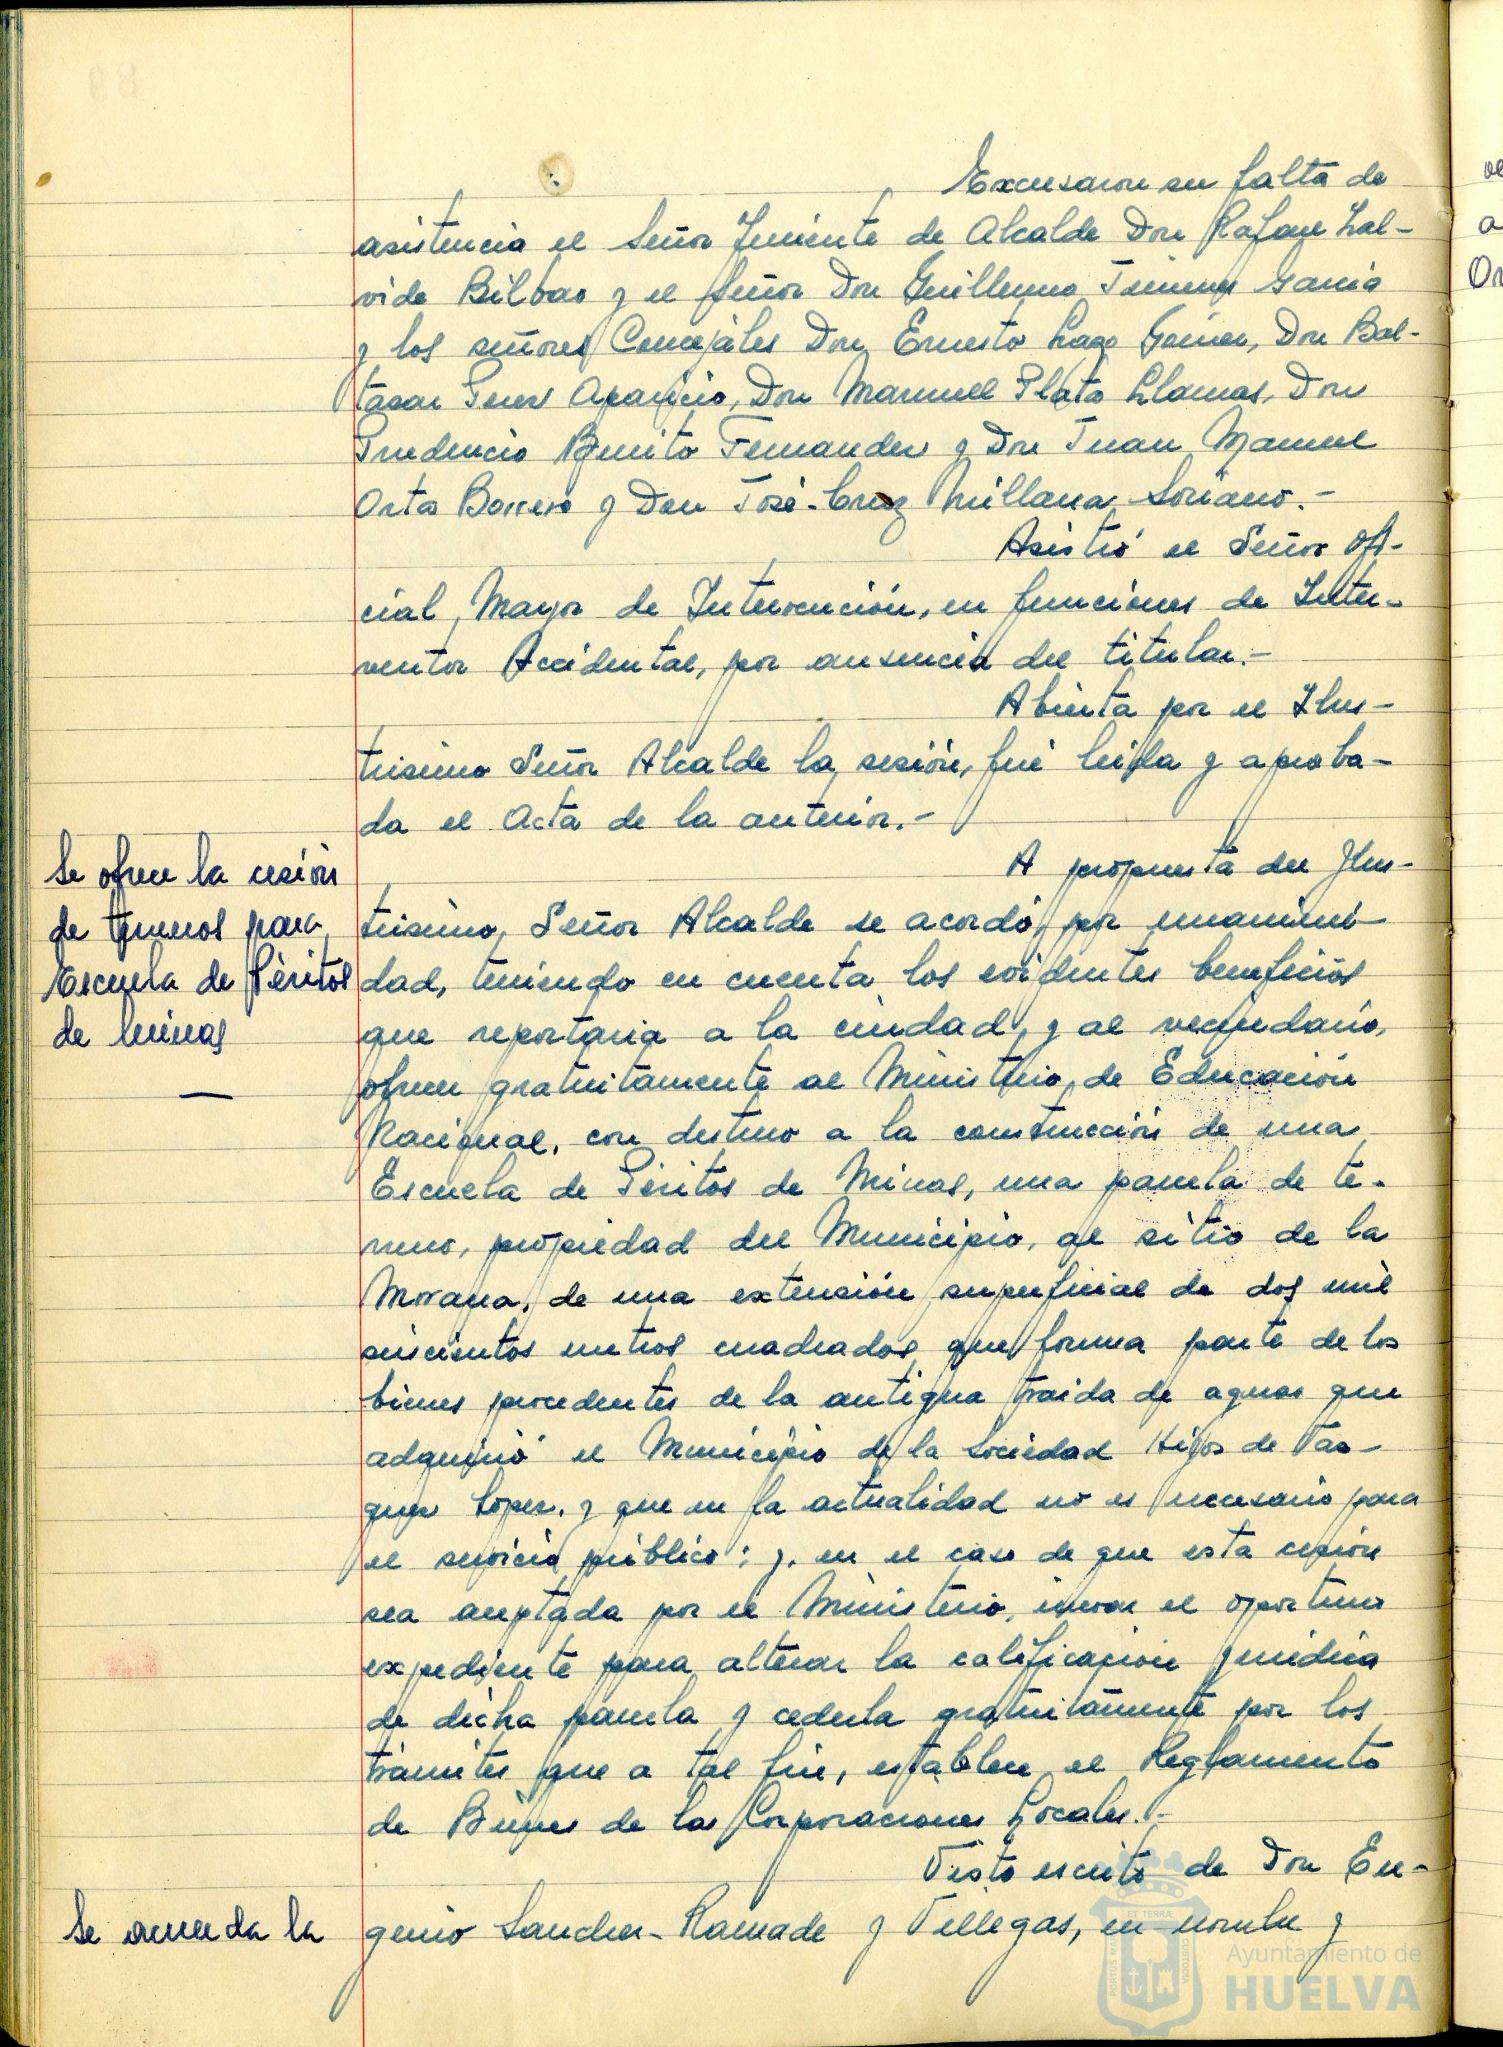 Excusaron su falta de
asistencia el Señor Teniente de Alcalde Don Rafael Sal-
vide Bilbao y el Señor Don Guillermo Jimenez Garcia
y los señores Concejales Don Ernesto Lago Don Bal-
tasar Perez Aparicio, Don Manuel Plata Llamas, Don
Prudencio Benito Fernandez y Don Juan Manuel
Orta Borrero y Don José-Cruz Millana Soriano.-
Asistió el Señor Ofi-
cial Mayor de Intervención, en funciones de Inter-
ventor Accidental, por ausencia del titular.-
Abierta por el Ilus-
trisimo Señor Alcalde la sesión, fué leida y aproba-
da el Acta de la anterior.-
Se ofrece la cesión
de terrenos para
Escuela de Péritos
de Minas
A propuesta del Ilus-
trisimo, Señor Alcalde se acordó, por unanimi-
dad, teniendo en cuenta los evidentes beneficios
que reportaria a la ciudad, y al vecindario,
ofrecer gratuitamente al Ministerio, de Educación
Nacional, con destino a la construcción de una
Escuela de Péritos de Minas, una parcela de te-
rreno, propiedad del Municipio, al sitio de la
Morana, de una extensión superficial de dos mil
seiscientos metros cuadrados, que forma parte de los
bienes procedentes de la antigua traida de aguas que
adquirió el Municipio de la Sociedad Hijos de Vaz-
quez Lopez, y que en la actualidad no es necesario para
el servicio público; y, en el caso de que esta cesión
sea aceptada por el Ministerio, incoar el oportuno
expediente para alterar la calificación juridica
de dicha parcela y cederla gratuitamente por los
tramites que a tal fin, establece el Reglamento
de Bienes de las Corporaciones Locales.-
Visto escrito de Don Eu-
Se acuerda la
genio Sanchez-Ramade y Villegas, en nombre y
PORTUS MARIS ET TERRÆ CUSTODIA
Ayuntamiento de
HUELVA